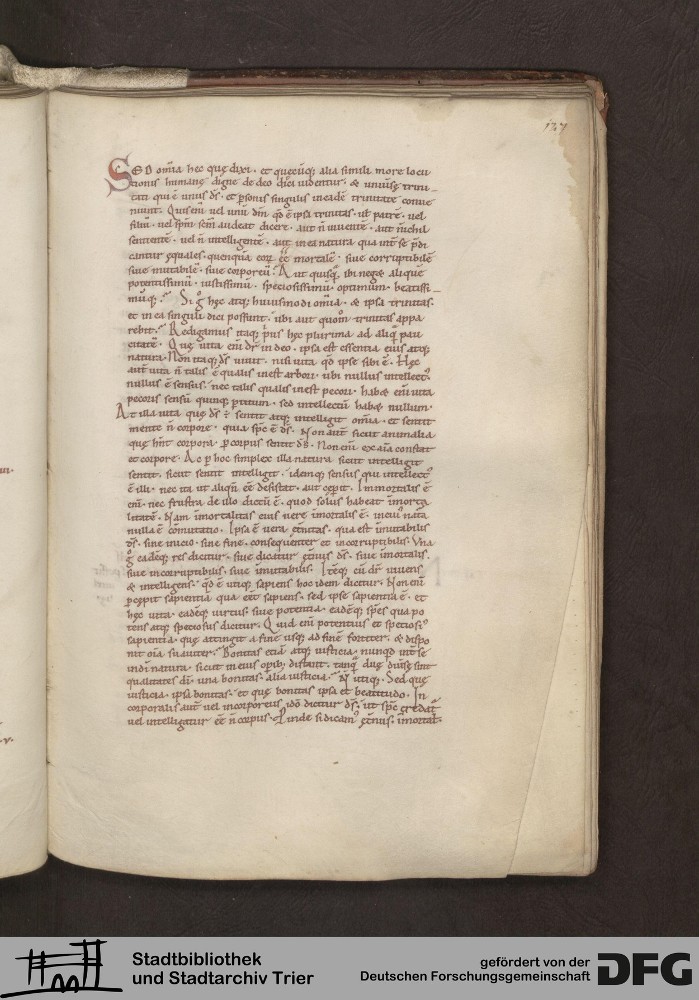 127
SED om̄ia hęc quę dixi · et quęcūq; alia simili more locu
tionis humanę digne de deo dici uidentur · & uniuersę trini-
tati qui ē unus d̄s · et ꝑsonis singulis in eadē trinitate conue
niunt · Quis enī uel unū d̄m qd̄ ē ipsa trinitas · ut̄ patrē · uel
filiū · uel sp̄m sc̄m audeat dicere · aut n̄ uiuentē · aut nichil
sentientē · uel n̄ intelligentē · aut in ea natura qua int̄ se p̄di
cantur ęquales · quenquā eoꝝ ēē mortalē · siue corruptibilē
siue mutabilē · siue corporeū · Aut quisq̄ ibi negat aliquē
potentissimū · iustissimū · speciosissimū · optimum · beatissi-
mūq; · Si g̊ hęc atq; huiusmodi om̄ia · & ipsa trinitas
et in ea singuli dici possunt · ubi aut quom̊ trinitas appa
rebit · Redigamus itaq; p̄us hęc plurima ad aliq̄ pau
citatē · Quę uita enī dr̄ in deo · ipsa est essentia eius atq;
natura · Non itaq; d̄s uiuit · nisi uita qd̊ ipse sibi ē · Hęc
aut̄ uita n̄ talis ē qualis inest arbori · ubi nullus intellectꝰ
nullus ē sensus · nec talis qualis inest pecori · habet enī uita
pecoris sensū quinq; ꝑtitum · sed intellectū habet nullum ·
At illa uita quę d̄s ē sentit atq; intelligit om̄ia · et sentit
mente n̄ corpore · quia sp̄c ē d̄s · Non aut̄ sicut animalia
quę hn̄t corpora ꝑ corpus sentit d̄s · Non enī ex aīa constat
et corpore · Ac ꝑ hoc simplex illa natura sicut intelligit
sentit · sicut sentit intelligit · idemq; sensus qui intellectꝰ
ē illi · nec ita ut aliqn̄ ēē desistat · aut cęperit · Immortalis ē
enī · nec frustra de illo dictū ē · quod solus habeat īmorta
litatē · Nam īmortalitas eius uere īmortalis ē · in cuiꝰ nata
nulla ē cōmutatio · Ipsa ē uera ęt̄nitas · qua est īmutabilis
d̄s · sine inicio · sine fine · consequenter et incorruptibilis · Una
g̊ eadēq; res dicitur · siue dicatur ęt̄nus d̄s · siue īmortalis ·
siue incorruptibilis · siue īmutabilis · Itēq; cū dr̄ uiuens
& intelligens · qd̊ ē utiq; sapiens hoc idem dicitur · Non enī
ꝑcępit sapientiā qua eēt sapiens · sed ipse sapientia ē · et
hęc uita · eadēq; uirtus · siue potentia · eadēq; sp̄es qua po
tens atq; speciosus dicitur · Quid enī potentius et speciosiꝰ
sapientia · quę attingit a fine usq; ad finē fortiter · & dispo
nit oīa suauiter · Bonitas etiā atq; iusticia · nunqd̊ int̄ se
in dī natura · sicut in eius opib; distant · tanq̄ duę diuersę sint
qualitates dī · una bonitas · alia iusticia · N̄ utiq; · Sed quę
iusticia · ipsa bonitas · et quę bonitas ipsa et beatitudo · In
corporalis aut̄ uel incorporeus ido dicitur d̄s · ut sp̄c credat̄
uel intelligatur ēē n̄ corpus · Proinde si dicamꝰ ęt̄nus · īmortal-
Stadtbibliothek
und Stadtarchiv Trier
gefördert von der
Deutschen Forschungsgemeinschaft
DFG